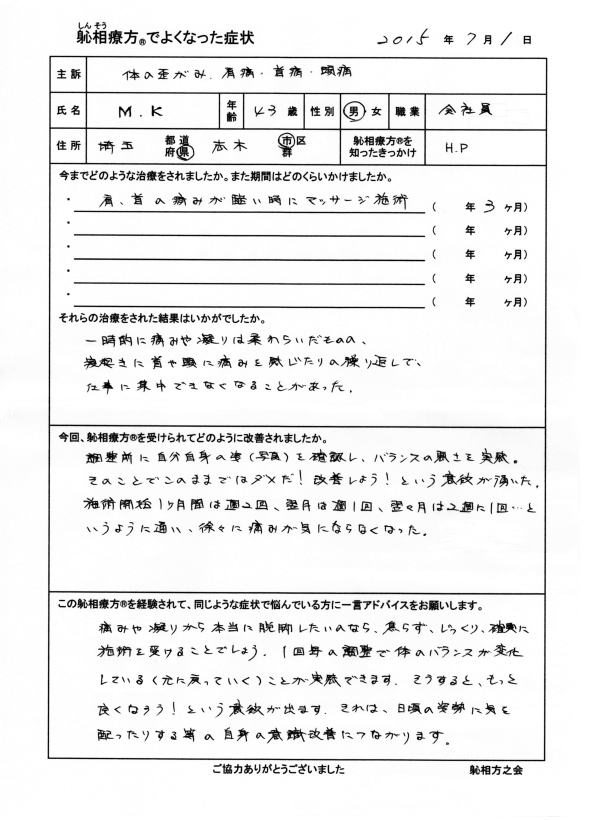 しん そう
躰相療方®でよくなった症状
2015 年 7 月 1 日
主訴 体の歪がみ、肩痛・首痛・頭痛
氏名 M.K 年齢 43 歳 性別 男・女 職業 会社員
住所 埼玉 都道府県 志木 市区群 躰相療方®を知ったきっかけ H.P
今までどのような治療をされましたか。また期間はどのくらいかけましたか。
・ 肩、首の痛みが酷い時にマッサージ施術 ( 年 3 ヶ月)
・ ( 年 ヶ月)
・ ( 年 ヶ月)
・ ( 年 ヶ月)
・ ( 年 ヶ月)
それらの治療をされた結果はいかがでしたか。
一時的に痛みや凝りは柔わらいだものの、
寝起きに首や頭に痛みを感じたりの繰り返しで、
仕事に集中できなくなることがあった。
今回、躰相療方®を受けられてどのように改善されましたか。
調整前に自分自身の姿(写真)を確認し、バランスの悪さを実感。
そのことでこのままではダメだ!改善しよう!という意欲が湧いた。
施術開始1ヶ月間は週2回、翌月は週1回、翌々月は2週に1回…と
いうように通い、徐々に痛みが気にならなくなった。
この躰相療方®を経験されて、同じような症状で悩んでいる方に一言アドバイスをお願いします。
痛みや凝りから本当に脱却したいのなら、焦らず、じっくり、確実に
施術を受けることでしょう。1回毎の調整で体のバランスが変化
している(元に戻っていく)ことが実感できます。そうすると、もっと
良くなろう!という意欲が出ます。それは、日頃の姿勢に気を
配ったりする等の自身の意識改善につながります。
ご協力ありがとうございました 躰相方之会